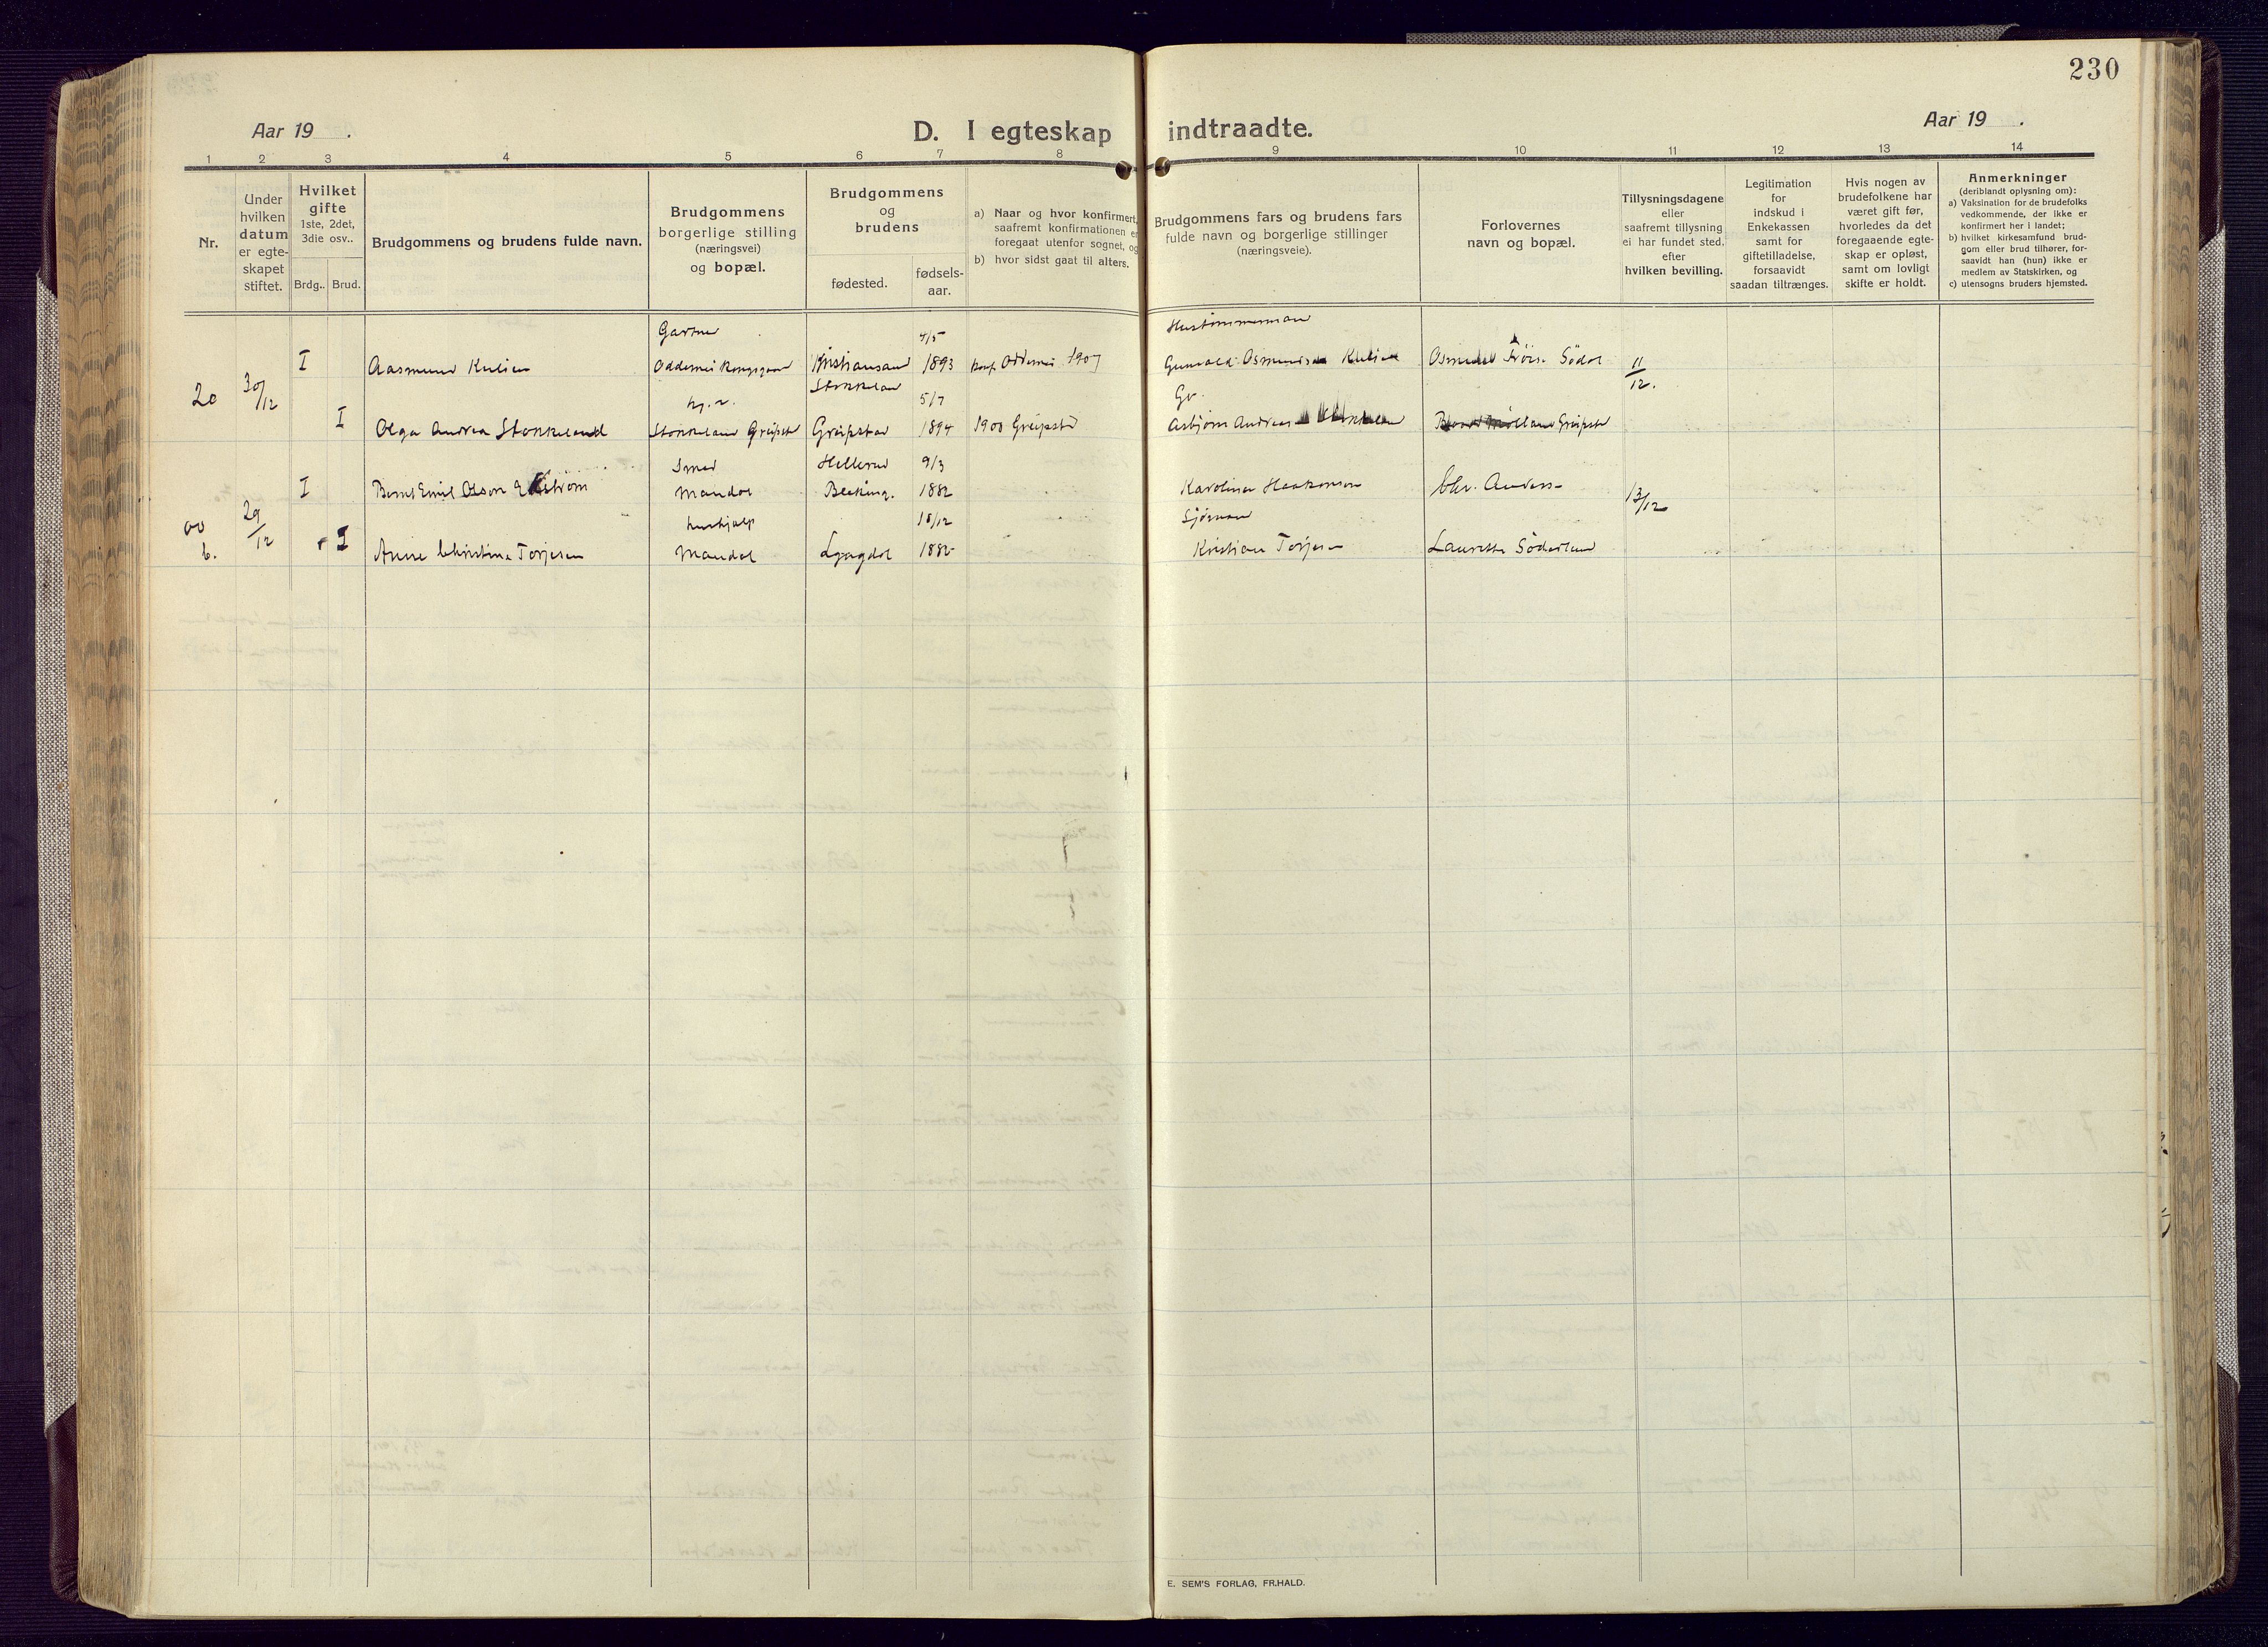 230
Aar 19 .
D. I egteskap indtraadte.
Aar 19 .
1 2 3 4 5 6 7 8 9 10 11 12 13 14
Nr.
Under
hvilken
datum
er egte-
skapet
stiftet.
Hvilket
gifte
1ste, 2det,
3die osv..
Brdg.. Brud.
Brudgommens og brudens fulde navn.
Brudgommens
borgerlige stilling
(næringsvei)
og bopæl.
Brudgommens
og
brudens
fødested.
fødsels-
aar.
a) Naar og hvor konfirmert,
saafremt konfirmationen er
foregaat utenfor sognet, og
b) hvor sidst gaat til alters.
Brudgommens fars og brudens fars
fulde navn og borgerlige stillinger
(næringsveie).
Forlovernes
navn og bopæl.
Tillysningsdagene
eller
saafremt tillysning
ei har fundet sted,
efter
hvilken bevilling.
Legitimation
for
indskud i
Enkekassen
samt for
giftetilladelse,
forsaavidt
saadan tiltrænges.
Hvis nogen av
brudefolkene har
været gift før,
hvorledes da det
foregaaende egte-
skap er opløst,
samt om lovligt
skifte er holdt.
Anmerkninger
(deriblandt oplysning om):
a) Vaksination for de brudefolks
vedkommende, der ikke er
konfirmert her i landet;
b) hvilket kirkesamfund brud-
gom eller brud tilhører, for-
saavidt han (hun) ikke er
medlem av Statskirken, og
c) utensogns bruders hjemsted.
Gartner 4/5
I Aasmund Kristiansand 1893 konf. Oddernes 1907 Gunvald Osmund 11/12.
20 30/12 Stokkeland 5/7 Gv.
I Olga Andrea Stokkeland Stokkeland Greipstad Greipstad 1894 1908 Greipstad Asbjørn Andreas Greipstad
Smed 9/3
I Bernt Emil Olson Mandal Bleking. 1882 Karolina Haakonson Chr. Anders 13/12
29/12 hushjelp 18/12 Sjømand
b. I Anne Christine Torjesen Mandal Lyngdal 1882 Kristian Torjesen Lauretta Söderlund
E. SEM'S FORLAG, FR.HALD.